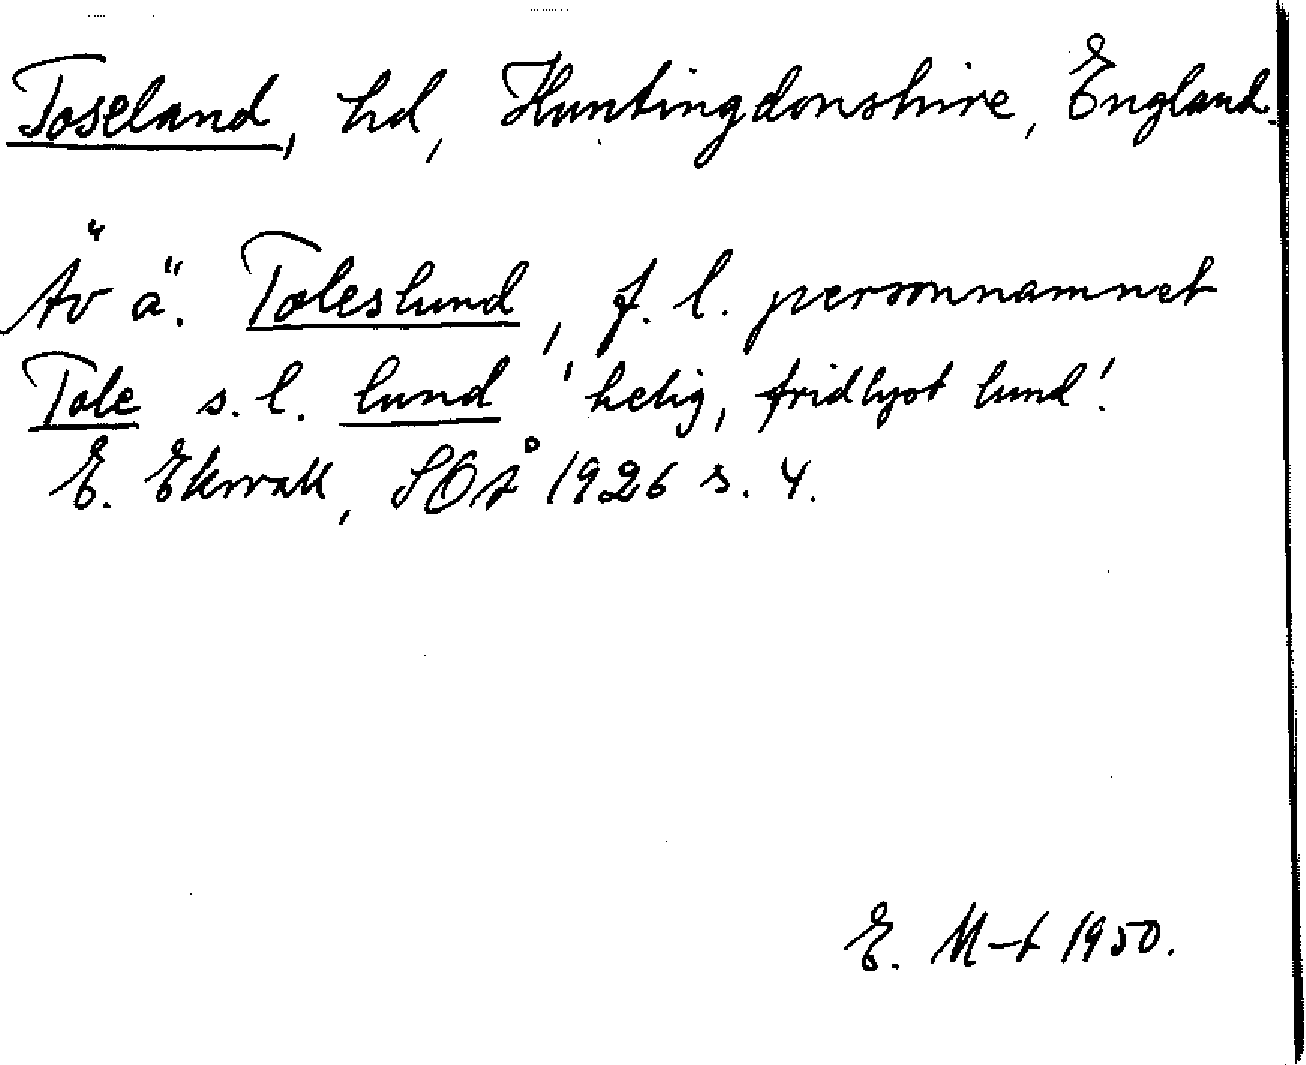 Toseland, hd, Huntingdonshire, England.
Av ä. Toleslund, f. l. personnamnet
Tole s. l. lund 'helig, fridlyst lund'.
E. Ekwall, SOÅ 1926 s. 4.
E. M-t 1950.